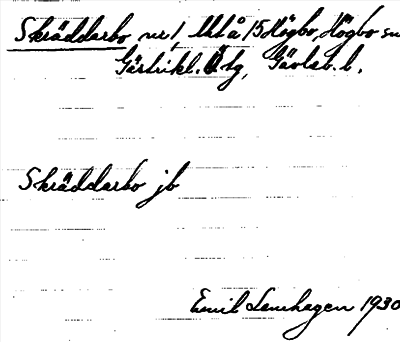 Skräddarbo nr 1 Mtl å 15 Högbo, Högbo sn
Gästrikl. Ö tg, Gävleb. l.
Skräddarbo jb
Emil Lenhagen 1930